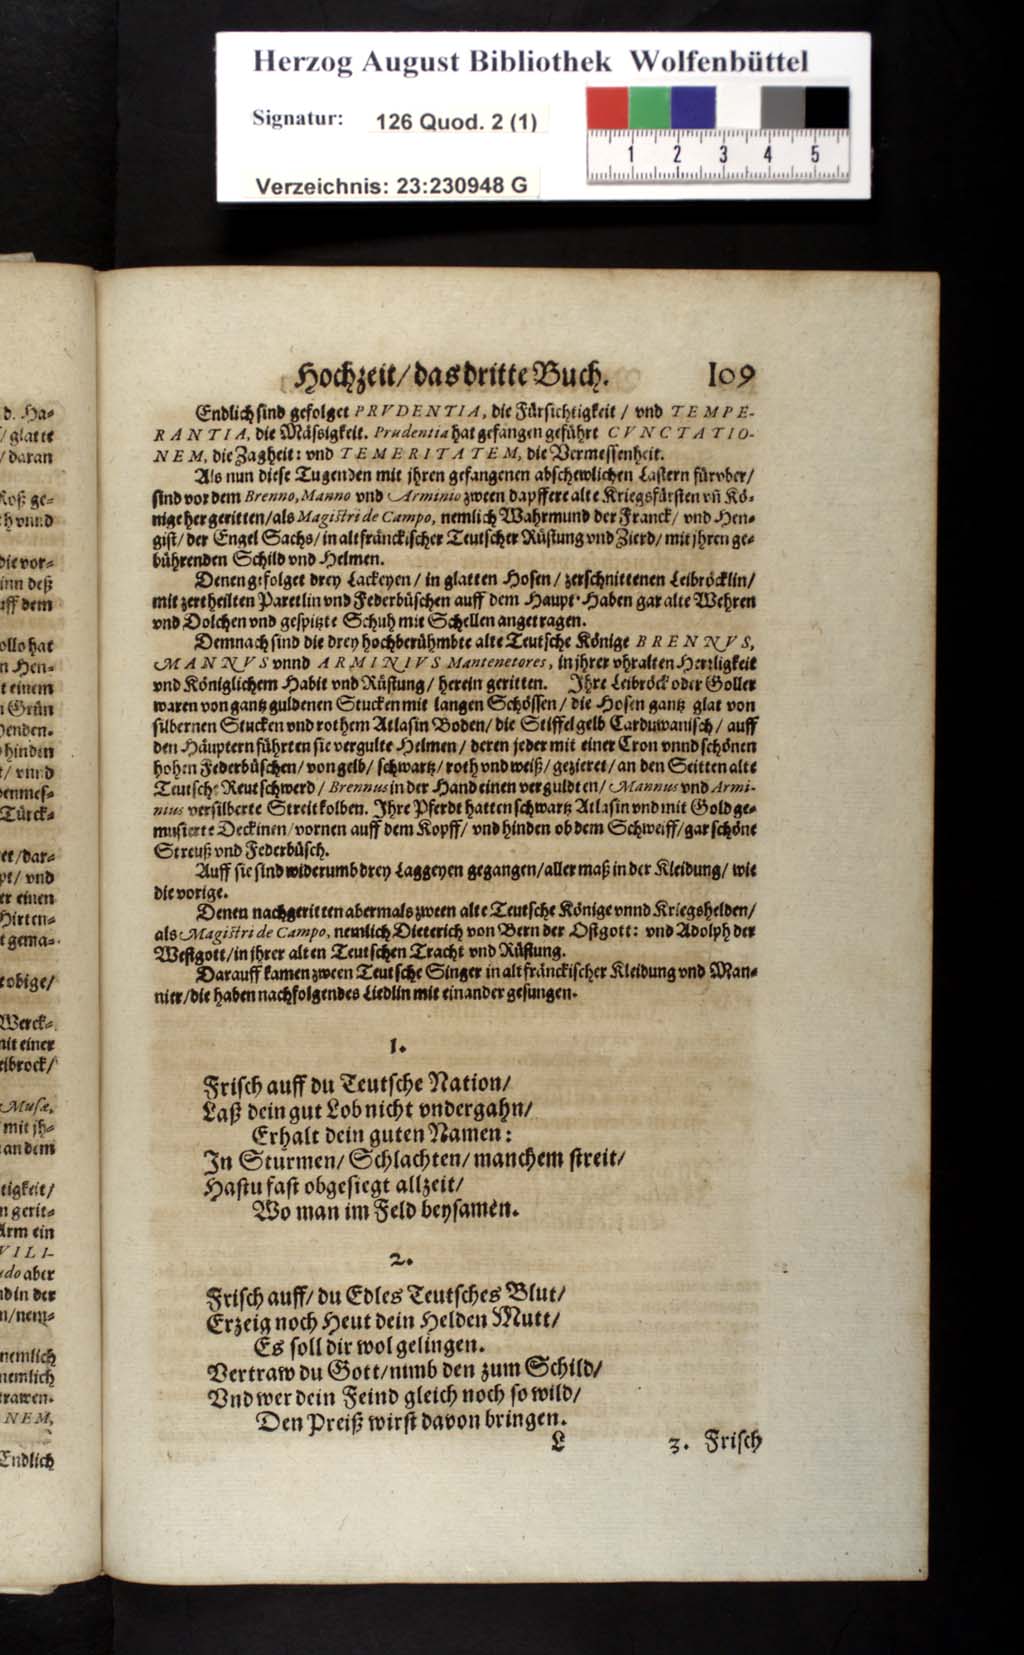 Herzog August Bibliothek Wolfenbüttel
Signatur: 126 Quod. 2 (1)
1 2 3 4 5
Verzeichnis: 23:230948 G
Hochzeit/ das dritte Buch. 109
Endlich sind gefolget PRVDENTIA, die Fürsichtigkeit / vnd TEMPE-
RANTIA, die Mässigkeit. Prudentia hat gefangen geführt CVNCTATIO-
NEM, die Zagheit: vnd TEMERITATEM, die Vermessenheit.
Als nun diese Tugenden mit jhren gefangenen abschewlichen Lastern fürvber/
sind vor dem Brenno, Manno vnd Arminio zween dapffere alte Kriegsfürsten vñ Kö-
nige her geritten/ als Magistri de Campo, nemlich Wahrmund der Franck/ vnd Hen-
gist/ der Engel Sachs/ in altfränckischer Teutscher Rüstung vnd Zierd/ mit jhren ge-
bührenden Schild vnd Helmen.
Denen gefolget drey Lackeyen/ in glatten Hosen/ zerschnittenen Leibröcklin/
mit zertheilten Paretlin vnd Federbüschen auff dem Haupt. Haben gar alte Wehren
vnd Dolchen vnd gespitzte Schuh mit Schellen angetragen.
Demnach sind die drey hochberühmbte alte Teutsche Könige BRENNVS,
MANNVS vnnd ARMINIVS Mantenetores, in jhrer vhralten Herrligkeit
vnd Königlichem Habit vnd Rüstung/ herein geritten. Ihre Leibröck oder Goller
waren von gantz guldenen Stucken mit langen Schössen/ die Hosen gantz glat von
silbernen Stucken vnd rothem Atlasin Boden/ die Stiffel gelb Carduwanisch/ auff
den Häuptern führten sie vergulte Helmen/ deren jeder mit einer Cron vnnd schönen
hohen Federbüschen/ von gelb/ schwartz/ roth vnd weiß/ gezieret/ an den Seitten alte
Teutsche Reutschwerd/ Brennus in der Hand einen verguldten/ Mannus vnd Armi-
nius versilberte Streitkolben. Ihre Pferdt hatten schwartz Atlasin vnd mit Gold ge-
musierte Deckinen/ vornen auff dem Kopff/ vnd hinden ob dem Schweiff/ gar schöne
Streuß vnd Federbüsch.
Auff sie sind widerumb drey Laggeyen gegangen/ aller maß in der Kleidung/ wie
die vorige.
Denen nachgeritten abermals zween alte Teutsche Könige vnnd Kriegshelden/
als Magistri de Campo, nemlich Dieterich von Bern der Ostgott: vnd Adolph der
Westgott/ in jhrer alten Teutschen Tracht vnd Rüstung.
Darauff kamen zween Teutsche Singer in altfränckischer Kleidung vnd Man-
nier/ die haben nachfolgendes Liedlin mit einander gesungen.
1.
Frisch auff du Teutsche Nation/
Laß dein gut Lob nicht vndergahn/
Erhalt dein guten Namen:
In Stürmen/ Schlachten/ manchem streit/
Hastu fast obgesiegt allzeit/
Wo man im Feld beysamen.
2.
Frisch auff/ du Edles Teutsches Blut/
Erzeig noch Heut dein Helden Mutt/
Es soll dir wol gelingen.
Vertraw du Gott/ nimb den zum Schild/
Vnd wer dein Feind gleich noch so wild/
Den Preiß wirst davon bringen.
L 3. Frisch